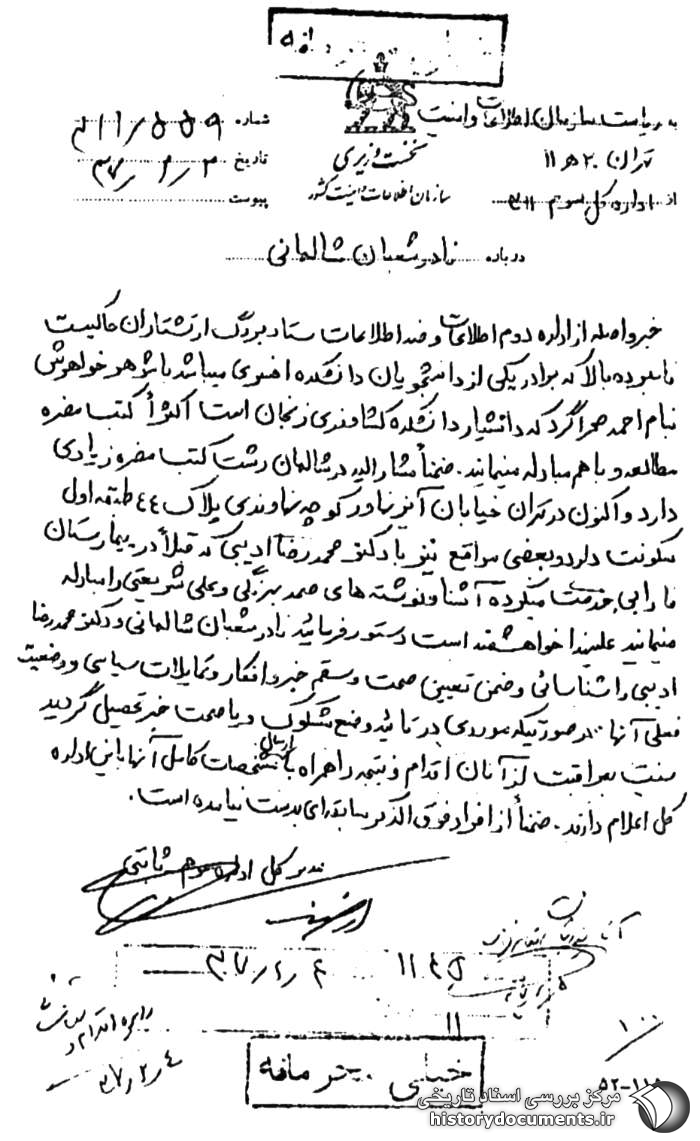 به ریاست سازمان اطلاعات و امنیت
تهران ۲۰ هـ ۱۱
از اداره کل سوم ۳۱۱
نخست وزیری
سازمان اطلاعات و امنیت کشور
شماره ۳۱۱/۵۵۹
تاریخ ۳۷/۱/۲
پیوست
درباره نادر شعبان شالمانی
خبر واصله از اداره دوم اطلاعات و ضد اطلاعات ستاد بزرگ ارتشتاران حاکیست
نامبرده بالا که برادر یکی از دانشجویان دانشکده افسری میباشد با شوهر خواهرش
بنام احمد صحراگرد که دانشیار دانشکده کشاورزی زنجان است اکثراً کتب مضره
مطالعه و با هم مبادله مینمایند. ضمناً مشارالیه در شالمان رشت کتب مضره زیادی
دارد و اکنون در تهران خیابان آیزنهاور کوچه نهاوندی پلاک ۴۴ طبقه اول
سکونت دارد و بعضی مواقع نیز با دکتر محمدرضا ادیبی که قبلاً در بیمارستان
فارابی خدمت میکرده آشنا و نوشته های صمد بهرنگی و علی شریعتی را مبادله
مینمایند علیهذا خواهشمند است دستور فرمائید نادر شعبان شالمانی و دکتر محمدرضا
ادیبی را شناسائی و ضمن تعیین صحت و سقم خبر و افکار و تمایلات سیاسی و وضعیت
فعلی آنها در صورتیکه موردی در تائید وضع مشکوک و یا صحت خبر تحصیل گردید
نسبت بمراقبت از آنان اقدام و نتیجه را همراه با ارسال مشخصات کامل آنها باین اداره
کل اعلام دارند. ضمناً از افراد فوق الذکر سابقه ای بدست نیامده است.
مدیر کل اداره سوم ثابتی
۱۱۴۵
۳۷/۱/۴
۱۱
۳۷/۲/۴
۱۰۰
خیلی محرمانه
مرکز بررسی اسناد تاریخی
historydocuments.ir